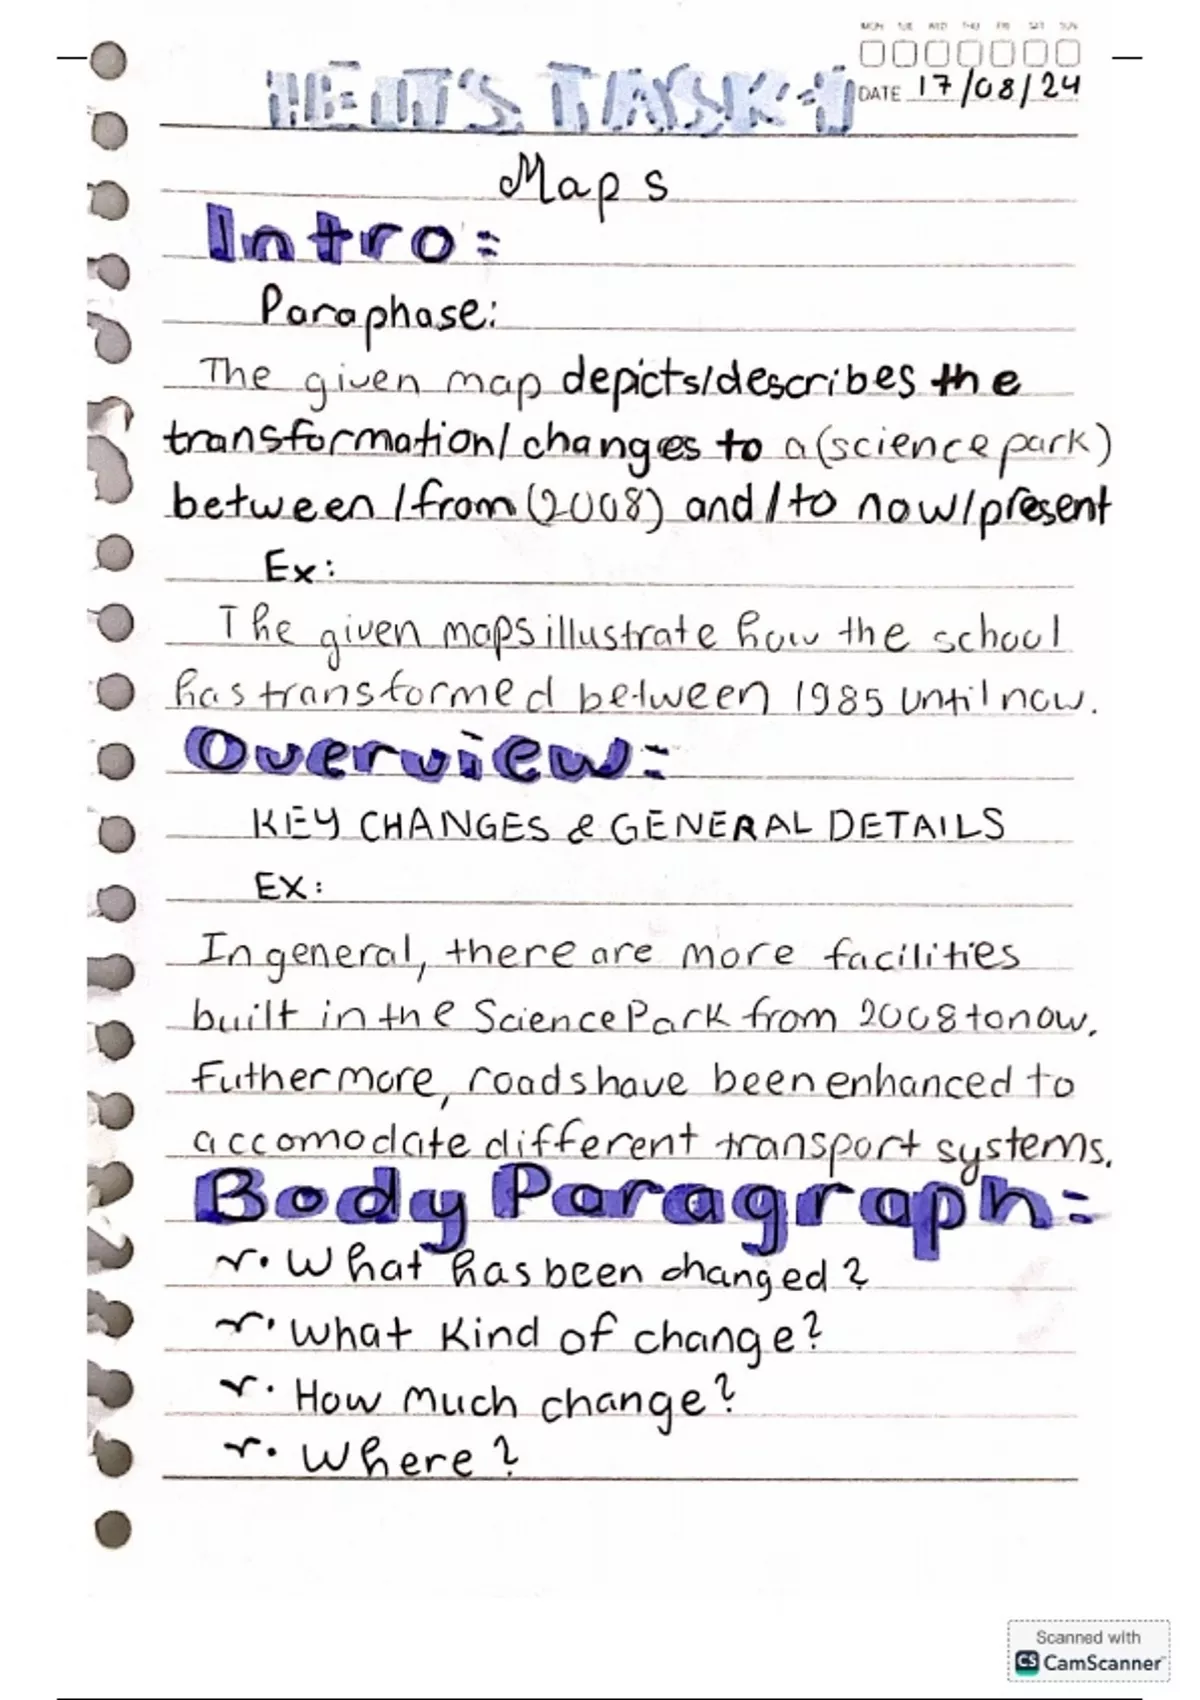 MON TUE WED THU FRI SAT SUN
IELTS TASK-1
DATE 17/08/24
Maps
Intro:
Paraphase:
The given map depicts/describes the
transformation/changes to a (science park)
between/from (2008) and/to now/present
Ex:
The given maps illustrate how the school
has transformed between 1985 until now.
Overview:
KEY CHANGES & GENERAL DETAILS
EX:
In general, there are more facilities
built in the Science Park from 2008 to now.
Futhermore, roads have been enhanced to
accomodate different transport systems.
Body Paragraph:
What has been changed?
What Kind of change?
How much change?
Where?
Scanned with
CS CamScanner